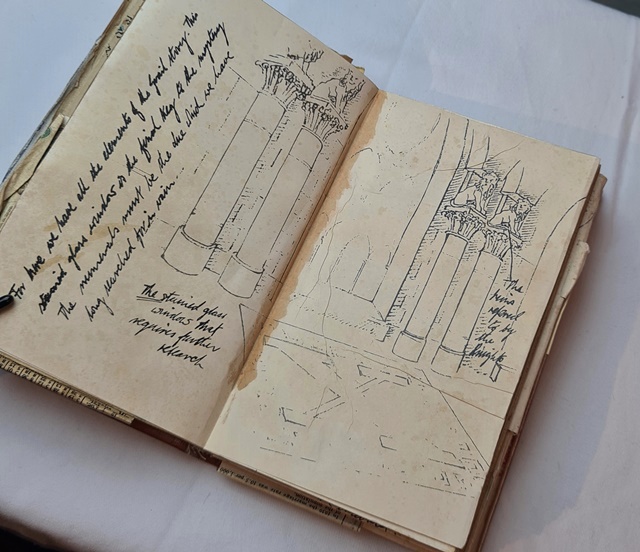 For here we have all the elements of the grail story. This
stained glass window is the final key to the mystery
The numerals must be the clue which we have
long searched for in vain...
The stained glass
window that
requires further
research
The
referred
to by
the
Knights